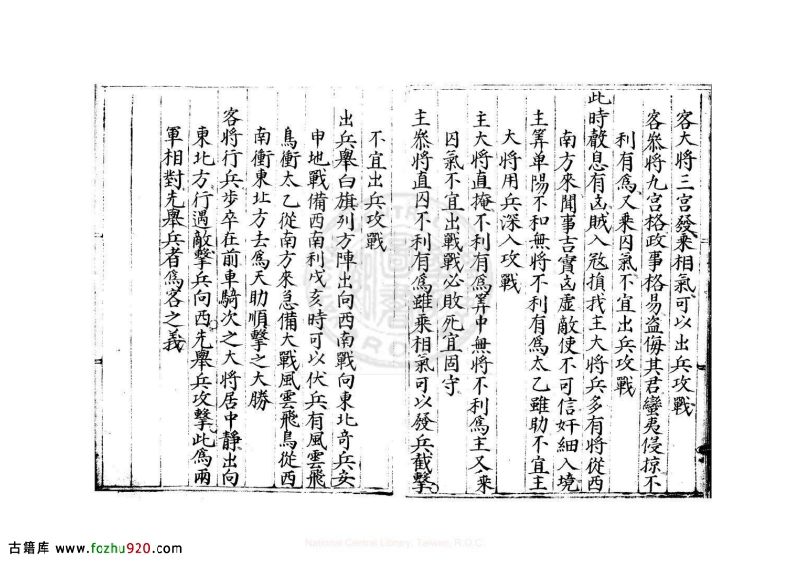 客大將三宮發乘相氣可以出兵攻戰
客叅將九宮格政事格易盜侮其君蠻夷侵掠不
利有爲又乘囚氣不宜出兵攻戰
此時敵息有凶賊入尅損我主大將兵多有將從西
南方來聞事吉實凶虛敵使不可信奸細入境
主筭单陽不和無將不利有爲太乙雖助不宜主
大將用兵深入攻戰
主大將直掩不利有爲筭中無將不利爲主又乘
囚氣不宜出戰戰必敗死宜固守
主叅將直囚不利有爲雖乘相氣可以發兵截擊
不宜出兵攻戰
出兵舉白旗列方陣出向西南戰向東北奇兵安
申地戰備西南利戌亥時可以伏兵有風雲飛
鳥衝太乙從南方來急備大戰風雲飛鳥從西
南衝東北方去爲天助順擊之大勝
客將行兵步卒在前車騎次之大將居中靜出向
東北方行遇敵擊兵向西先舉兵攻擊此爲兩
軍相對先舉兵者爲客之義
古籍库 www.fozhu920.com
National Central Library, Taiwan, R.O.C.